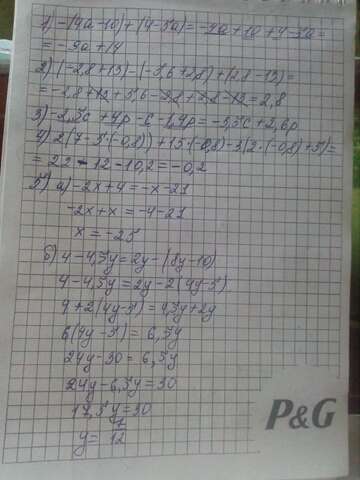 1) -(4a-10)+(4-5a)=-4a+10+4-5a=
=-9a+14
2) (-2,8+13)-(-5,6+2,8)+(2,8-13)=
=-2,8+13+5,6-2,8+2,8-13=2,8
3) -2,5c+4p-c-1,4p=-3,5c+2,6p
4) 2(7-5·(-0,8))+15·(-0,8)-3(2·(-0,8)+5)=
=22-12-10,2=-0,2
5) а) -2x+4=-x-21
-2x+x=-4-21
x=-25
б) 4-4,5y=2y-(8y-10)
4-4,5y=2y-2(4y-5)
4+2(4y-5)=4,5y+2y
6(4y-5)=6,5y
24y-30=6,5y
24y-6,5y=30
17,5y=30
y=12
P&G